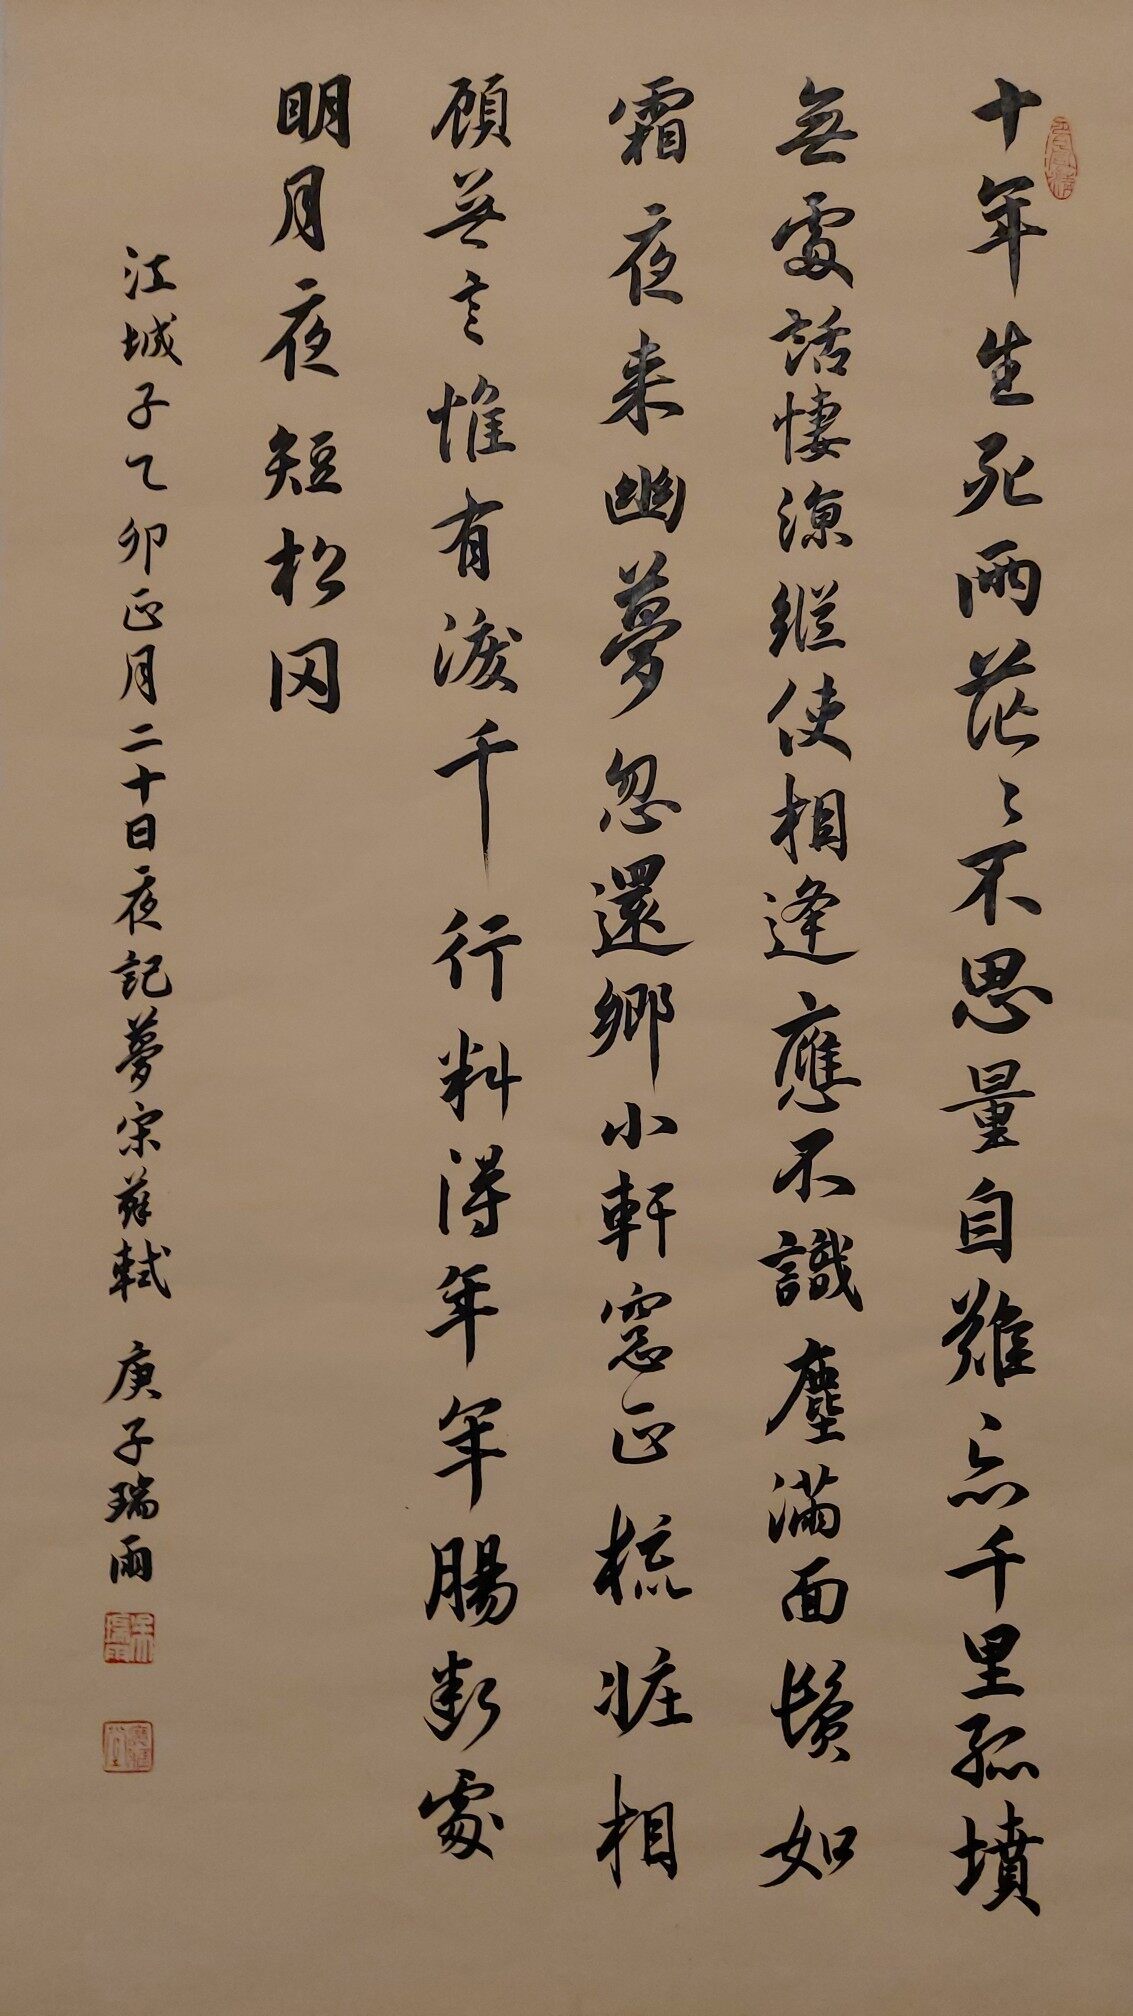 十年生死兩茫〻不思量自難忘千里孤墳
無處話悽涼縱使相逢應不識塵滿面鬢如
霜夜来幽夢忽還鄉小軒窓正梳妝相
顧無言惟有淚千行料得年年年腸斷處
明月夜短松冈
江城子乙卯正月二十日夜記夢宋蘇軾 庚子瑞雨